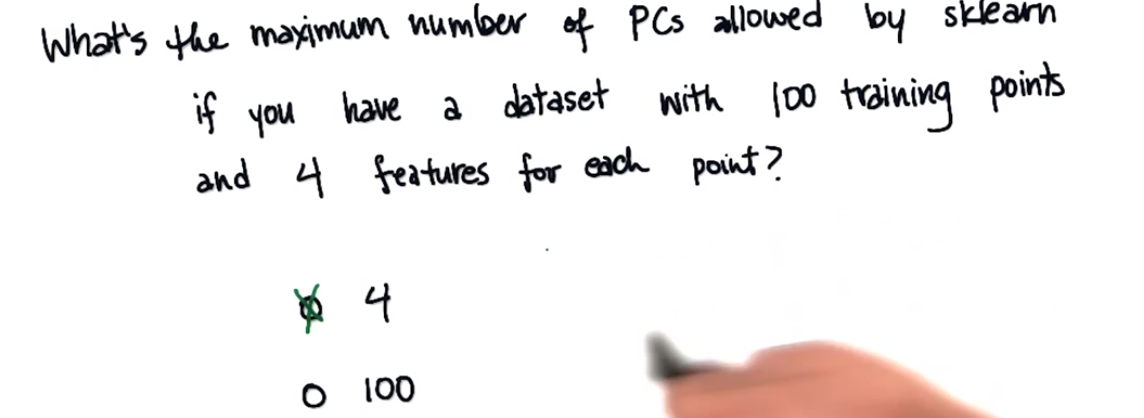 What's the maximum number of PCs allowed by sklearn
if you have a dataset with 100 training points
and 4 features for each point?
4
100